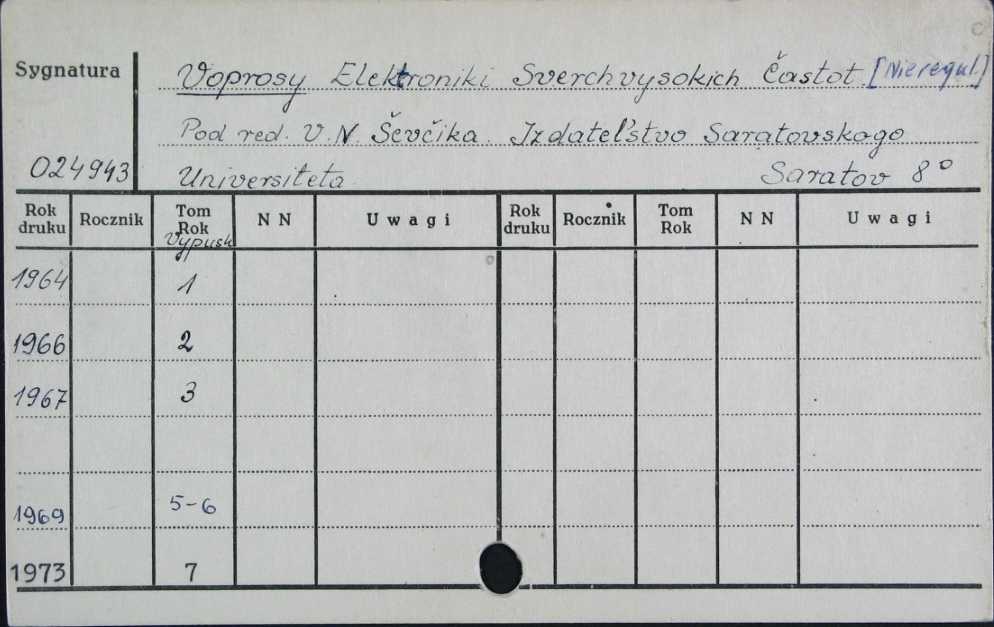 Sygnatura
Voprosy Elektroniki Sverchvysokich Častot [Nieregul.]
Pod red. V.N. Ševčika. Izdatel'stvo Saratovskogo
024943
Universiteta Saratov 8°
Rok druku Rocznik Tom Rok Vypusk N N Uwagi Rok druku Rocznik Tom Rok N N Uwagi
1964 1
1966 2
1967 3
1969 5-6
1973 7